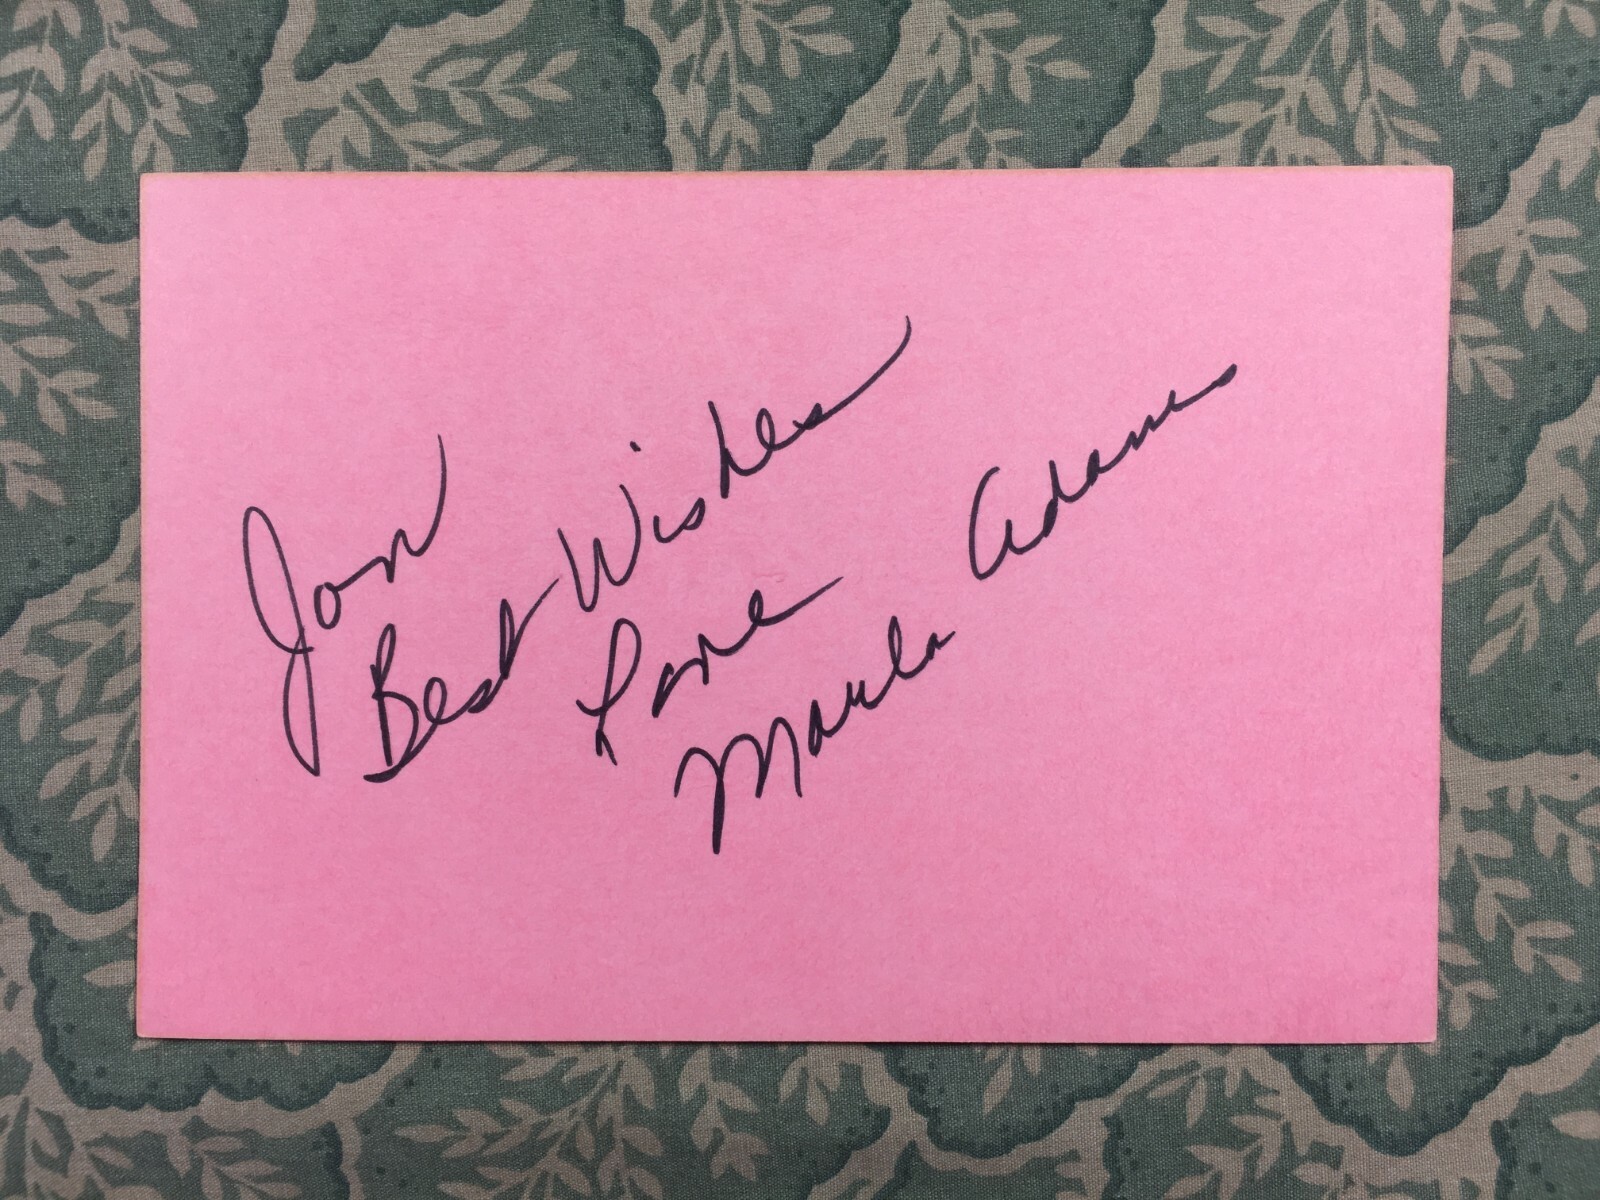 Jon
Best Wishes
Love
Maula Adams